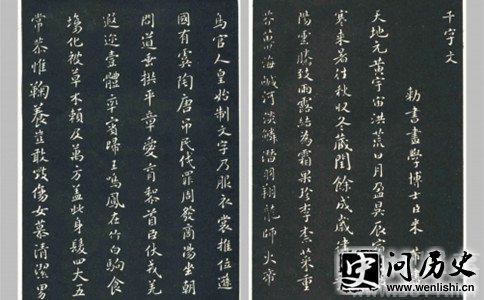 千字文
勅書畫學博士臣米
天地元黃宇宙洪荒日月盈昃辰宿
寒來暑往秋収冬藏閏餘成歲律
陽雲騰致雨露結為霜果珍李柰菜重
芥薑海鹹河淡鱗潛羽翔龍師火帝
鳥官人皇始制文字乃服衣裳推位遜
國有虞陶唐吊民伐罪周發商湯坐朝
問道垂拱平章愛育黎首臣伏戎羌
遐迩壹體率賓歸王鳴鳳在竹白駒食
場化被草木賴及萬方盖此身髮四大五
常恭惟鞠養豈敢毀傷女慕清潔男
史 问历史
www.wenlishi.cn